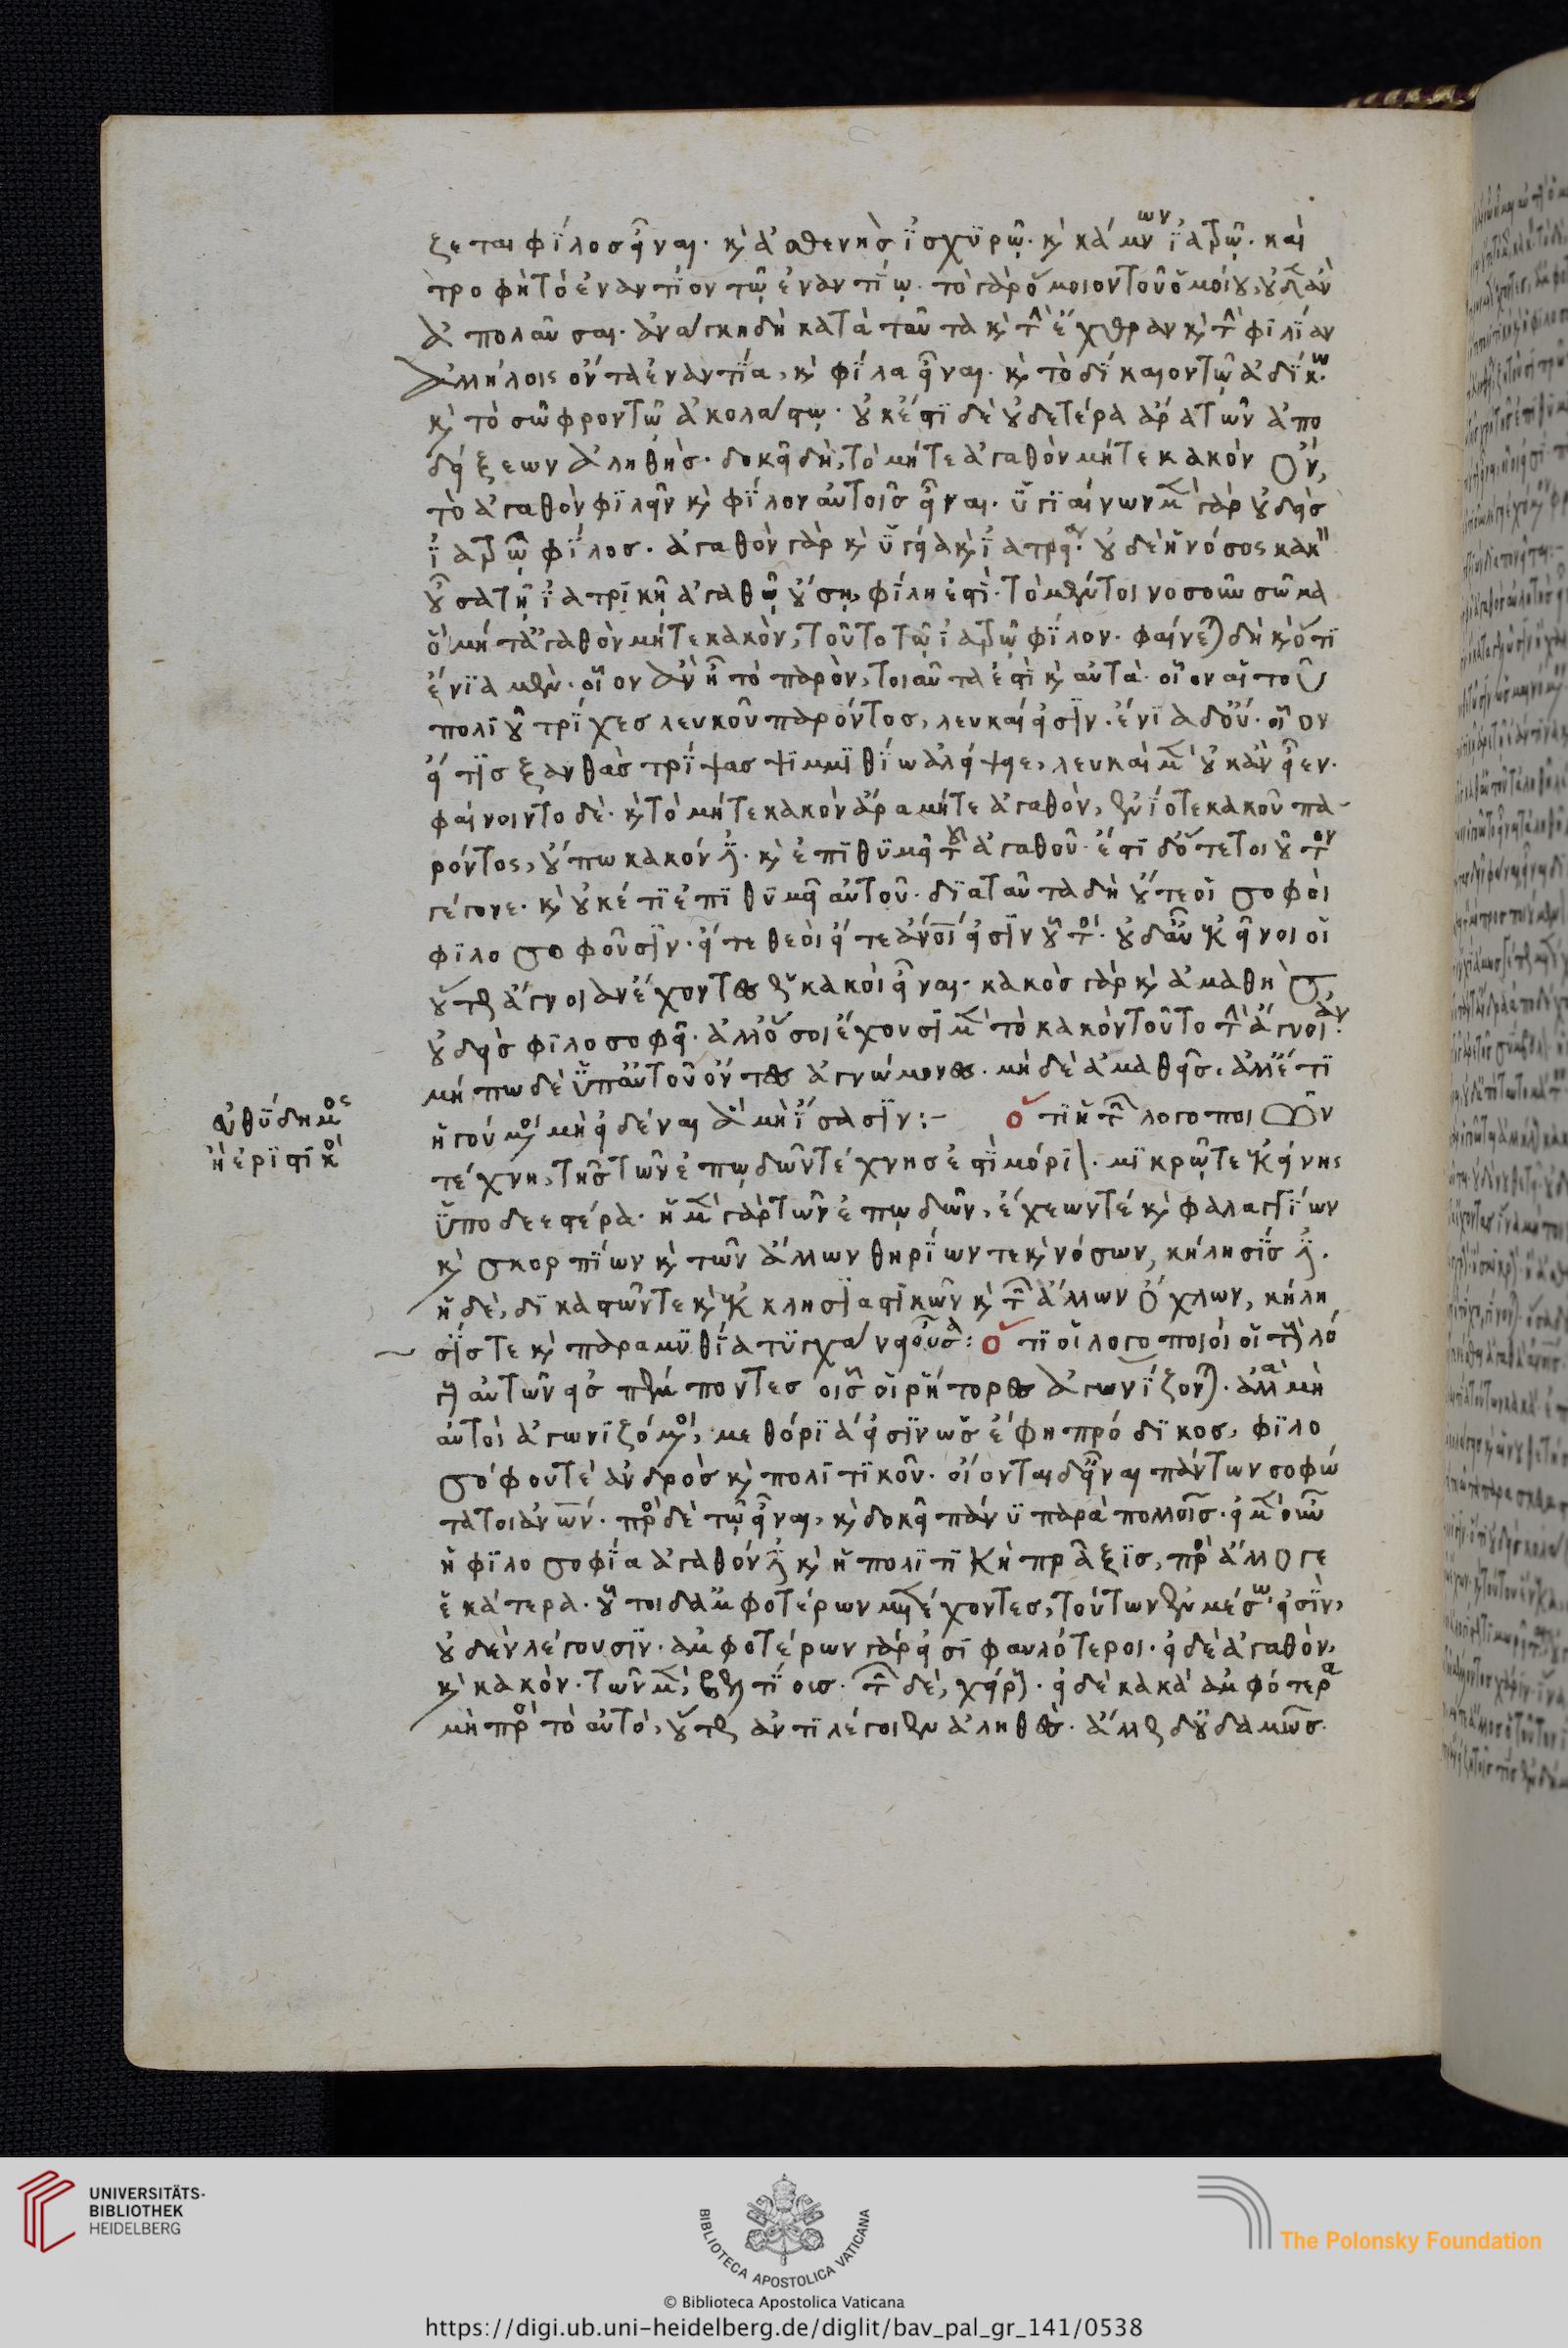 ζεται φίλος εἶναι· κ̀ ἀσθενὴς ἰσχυρῶ· κ̀ κάμνων ἰατρῶ· καὶ
τροφὴ τὸ ἐναντίον τῷ ἐναντίῳ· τὸ γὰρ ὅμοιον τοῦ ὁμοίου, οὐδὲν ἂν
ἀπολαῦσαι· ἀνάγκη δὴ κατὰ ταῦτα κ̀ τὴν ἔχθραν κ̀ τὴν φιλίαν
ἀλλήλοις ὄντα ἐναντία, κ̀ φίλα εἶναι· κ̀ τὸ δίκαιον τῷ ἀδίκῳ·
κ̀ τὸ σῶφρον τῷ ἀκολάστῳ· οὐκ ἔστι δὲ οὐδετέρα ἄρα τῶν ἀπο
δείξεων ἀληθής· δοκεῖ δὴ, τὸ μήτε ἀγαθὸν μήτε κακὸν ὄν,
τὸ ἀγαθὸν φιλεῖν κ̀ φίλον αὐτοῖς εἶναι· ὑγιαίνων μὲν γὰρ οὐδεὶς
ἰατρῷ φίλος· ἀγαθὸν γὰρ κ̀ ὑγεία κ̀ ἰατρεία· οὐδὲ ἡ νόσος κακὴ
οὖσα τῇ ἰατρικῇ ἀγαθῇ οὔσῃ, φίλη ἐστὶ· τὸ μέντοι νοσοῦν σῶμα
ὃ μήτ' ἀγαθὸν μήτε κακὸν, τοῦτο τῷ ἰατρῷ φίλον· φαίνεται δὴ κ̀ ὅτι
ἔνια μὲν· οἷον ἂν ᾖ τὸ παρὸν, τοιαῦτα ἐστὶ κ̀ αὐτὰ· οἷον αἱ τοῦ
πολιοῦ τρίχες λευκοῦ παρόντος, λευκαί εἰσιν· ἔνια δ' οὔ· οἷον
εἴ τις ξανθὰς τρίψας ψιμμιθίω ἀλείψειε, λευκαὶ μὲν οὐκ ἂν εἶεν·
φαίνοιντο δὲ· κ̀ τὸ μήτε κακὸν ἄρα μήτε ἀγαθὸν, ἐνίοτε κακοῦ πα-
ρόντος, οὔπω κακόν ἐστι· κ̀ ἐπιθυμεῖ τοῦ ἀγαθοῦ· ἔστι δ' ὅτε τοιοῦτον
γέγονε· κ̀ οὐκέτι ἐπιθυμεῖ αὐτοῦ· διὰ ταῦτα δὴ οὔτε οἱ σοφοὶ
φιλοσοφοῦσιν· εἴτε θεοὶ εἴτε ἄνοί εἰσιν οὗτοι· οὐδ' αὖ κεῖνοι οἱ
οὕτως ἄγνοιαν ἔχοντες ὡς κακοὶ εἶναι· κακὸς γὰρ κ̀ ἀμαθὴς
οὐδεὶς φιλοσοφεῖ· ἀλλ' ὅσοι ἔχουσι μὲν τὸ κακὸν τοῦτο τὴν ἄγνοιαν·
μήπω δὲ ὑπ' αὐτοῦ ὄντες ἀγνώμονες· μηδὲ ἀμαθεῖς. ἀλλ' ἔτι
ἡγούμενοι μὴ εἰδέναι ἃ μὴ ἴσασιν:- ὅτι ἡ τῶν λογοποιῶν
τέχνη, τῆς τῶν ἐπῳδῶν τέχνης ἐστὶ μόριον· μικρῷ τε κείνης
ὑποδεεστέρα· ἡ μὲν γὰρ τῶν ἐπῳδῶν, ἔχεων τέ κ̀ φαλαγγίων
κ̀ σκορπίων κ̀ τῶν ἄλλων θηρίων τε κ̀ νόσων, κήλησίς ἐστι.
ἡ δὲ, δικαστῶν τε κ̀ ἐκκλησιαστικῶν κ̀ τῶν ἄλλων ὄχλων, κήλη
σίς τε κ̀ παραμυθία τυγχάνει οὖσα: ὅτι οἱ λογοποιοὶ οἱ τῆς λό
γοις αὐτῶν εἰσπέμποντες οἷς οἱ ῥήτορες ἀγωνίζονται· ἀλλὰ μὴ
αὐτοὶ ἀγωνιζόμενοι, μεθόρια εἰσὶν ὡς ἔφη πρόδικος, φιλο
σόφου τὲ ἀνδρὸς κ̀ πολιτικοῦ· οἴονται δ' εἶναι πάντων σοφώ
τατοι ἀνῶν· πρὸς δὲ τῷ εἶναι, κ̀ δοκεῖ πάνυ παρὰ πολλοῖς· εἰ μὲν οὖν
ἡ φιλοσοφία ἀγαθόν ἐστι κ̀ ἡ πολιτικὴ πρᾶξις, πρὸς ἄλλο γε
ἑκάτερα· οὗτοι δ' ἀμφοτέρων μετέχοντες, τούτων ἐν μέσῳ εἰσὶν,
οὐδὲν λέγουσιν· ἀμφοτέρων γάρ εἰσι φαυλότεροι· εἰ δὲ ἀγαθὸν,
κ̀ κακὸν· τῶν μὲν, βελτίοις· τῶν δὲ, χείρους· εἰ δὲ κακὰ ἀμφότερα
μὴ πρὸς τὸ αὐτὸ, οὕτως ἄν τι λέγοιεν ἀληθὲς· ἄλλως δ' οὐδαμῶς·
εὐθύδημος
ἢ ἐριστικὸς
UNIVERSITÄTS-
BIBLIOTHEK
HEIDELBERG
BIBLIOTECA APOSTOLICA VATICANA
The Polonsky Foundation
© Biblioteca Apostolica Vaticana
https://digi.ub.uni-heidelberg.de/diglit/bav_pal_gr_141/0538